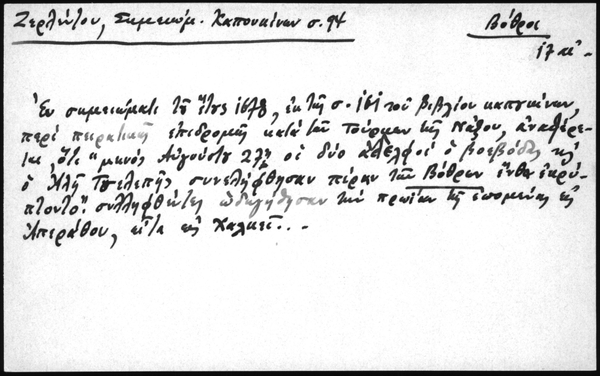 Ζερλέντου, Σημειώμ. Καπουκίνων σ. 94
Βόθροι
17 αἰ.
Ἐν σημειώματι τοῦ ἔτους 1678, ἐκ τῆς σ. 161 τοῦ βιβλίου καπουκίνων,
περὶ πειρατικῆς ἐπιδρομῆς κατὰ τῶν Τούρκων τῆς Νάξου, ἀναφέρε-
ται, ὅτι "μηνὸς Αὐγούστου 27ῃ οἱ δύο ἀδελφοὶ ὁ βοεβόδας κὶ
ὁ Ἀλῆ Τσελεπῆς συνελήφθησαν πέραν τῶν Βόθρων ἔνθα ἐκρύ-
πτοντο". συλληφθέντες ὡδηγήθησαν τὴν πρωΐαν τῆς ἑπομένης εἰς
Ἀπεράθου, εἶτα εἰς Χαλκεῖ...-